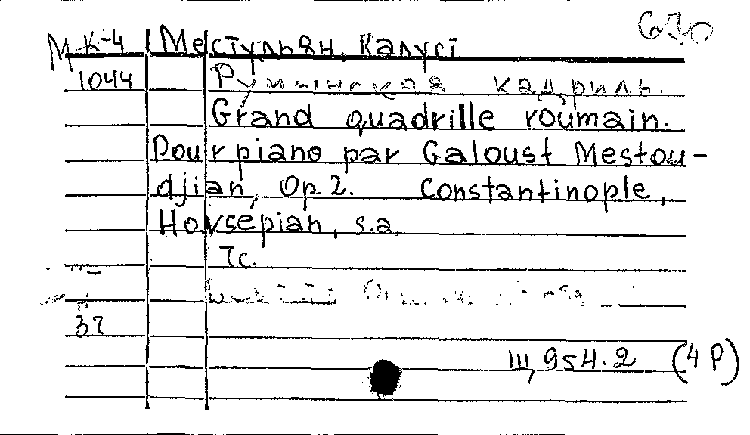 630
МК-4 Местульян, Калуст
1044 Румынская кадриль.
Grand quadrille roumain.
Pour piano par Galoust Mestou-
djian, Op 2. Constantinople,
Hovsepian, s.a.
7с.
37
Ш, 954.2 (4 Р)